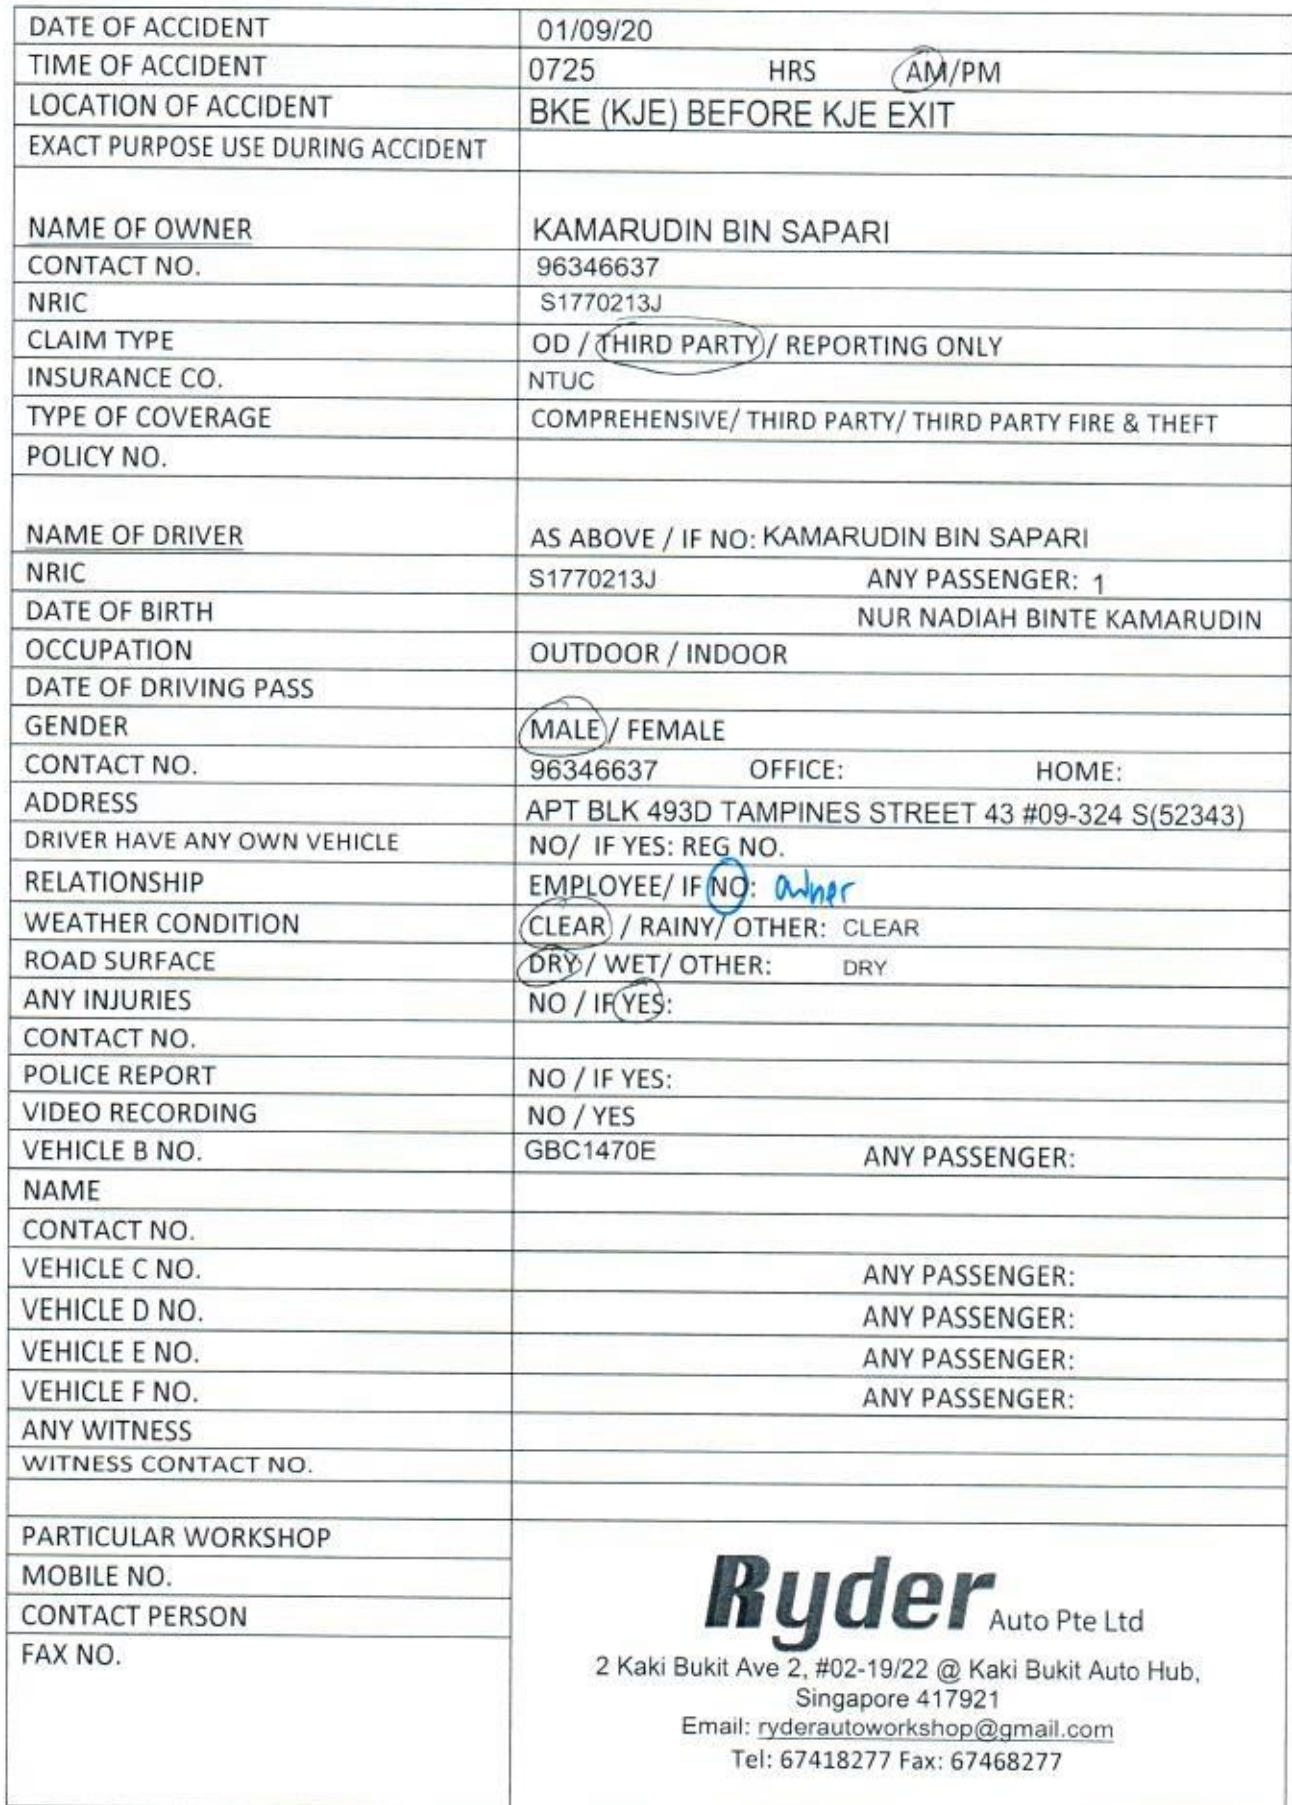 DATE OF ACCIDENT 01/09/20
TIME OF ACCIDENT 0725 HRS AM/PM
LOCATION OF ACCIDENT BKE (KJE) BEFORE KJE EXIT
EXACT PURPOSE USE DURING ACCIDENT
NAME OF OWNER KAMARUDIN BIN SAPARI
CONTACT NO. 96346637
NRIC S1770213J
CLAIM TYPE OD / THIRD PARTY / REPORTING ONLY
INSURANCE CO. NTUC
TYPE OF COVERAGE COMPREHENSIVE/ THIRD PARTY/ THIRD PARTY FIRE & THEFT
POLICY NO.
NAME OF DRIVER AS ABOVE / IF NO: KAMARUDIN BIN SAPARI
NRIC S1770213J ANY PASSENGER: 1
DATE OF BIRTH NUR NADIAH BINTE KAMARUDIN
OCCUPATION OUTDOOR / INDOOR
DATE OF DRIVING PASS
GENDER MALE / FEMALE
CONTACT NO. 96346637 OFFICE: HOME:
ADDRESS APT BLK 493D TAMPINES STREET 43 #09-324 S(52343)
DRIVER HAVE ANY OWN VEHICLE NO/ IF YES: REG NO.
RELATIONSHIP EMPLOYEE/ IF NO: owner
WEATHER CONDITION CLEAR / RAINY/ OTHER: CLEAR
ROAD SURFACE DRY / WET/ OTHER: DRY
ANY INJURIES NO / IF YES:
CONTACT NO.
POLICE REPORT NO / IF YES:
VIDEO RECORDING NO / YES
VEHICLE B NO. GBC1470E ANY PASSENGER:
NAME
CONTACT NO.
VEHICLE C NO. ANY PASSENGER:
VEHICLE D NO. ANY PASSENGER:
VEHICLE E NO. ANY PASSENGER:
VEHICLE F NO. ANY PASSENGER:
ANY WITNESS
WITNESS CONTACT NO.
PARTICULAR WORKSHOP
MOBILE NO.
CONTACT PERSON
FAX NO.
Ryder Auto Pte Ltd
2 Kaki Bukit Ave 2, #02-19/22 @ Kaki Bukit Auto Hub,
Singapore 417921
Email: ryderautoworkshop@gmail.com
Tel: 67418277 Fax: 67468277